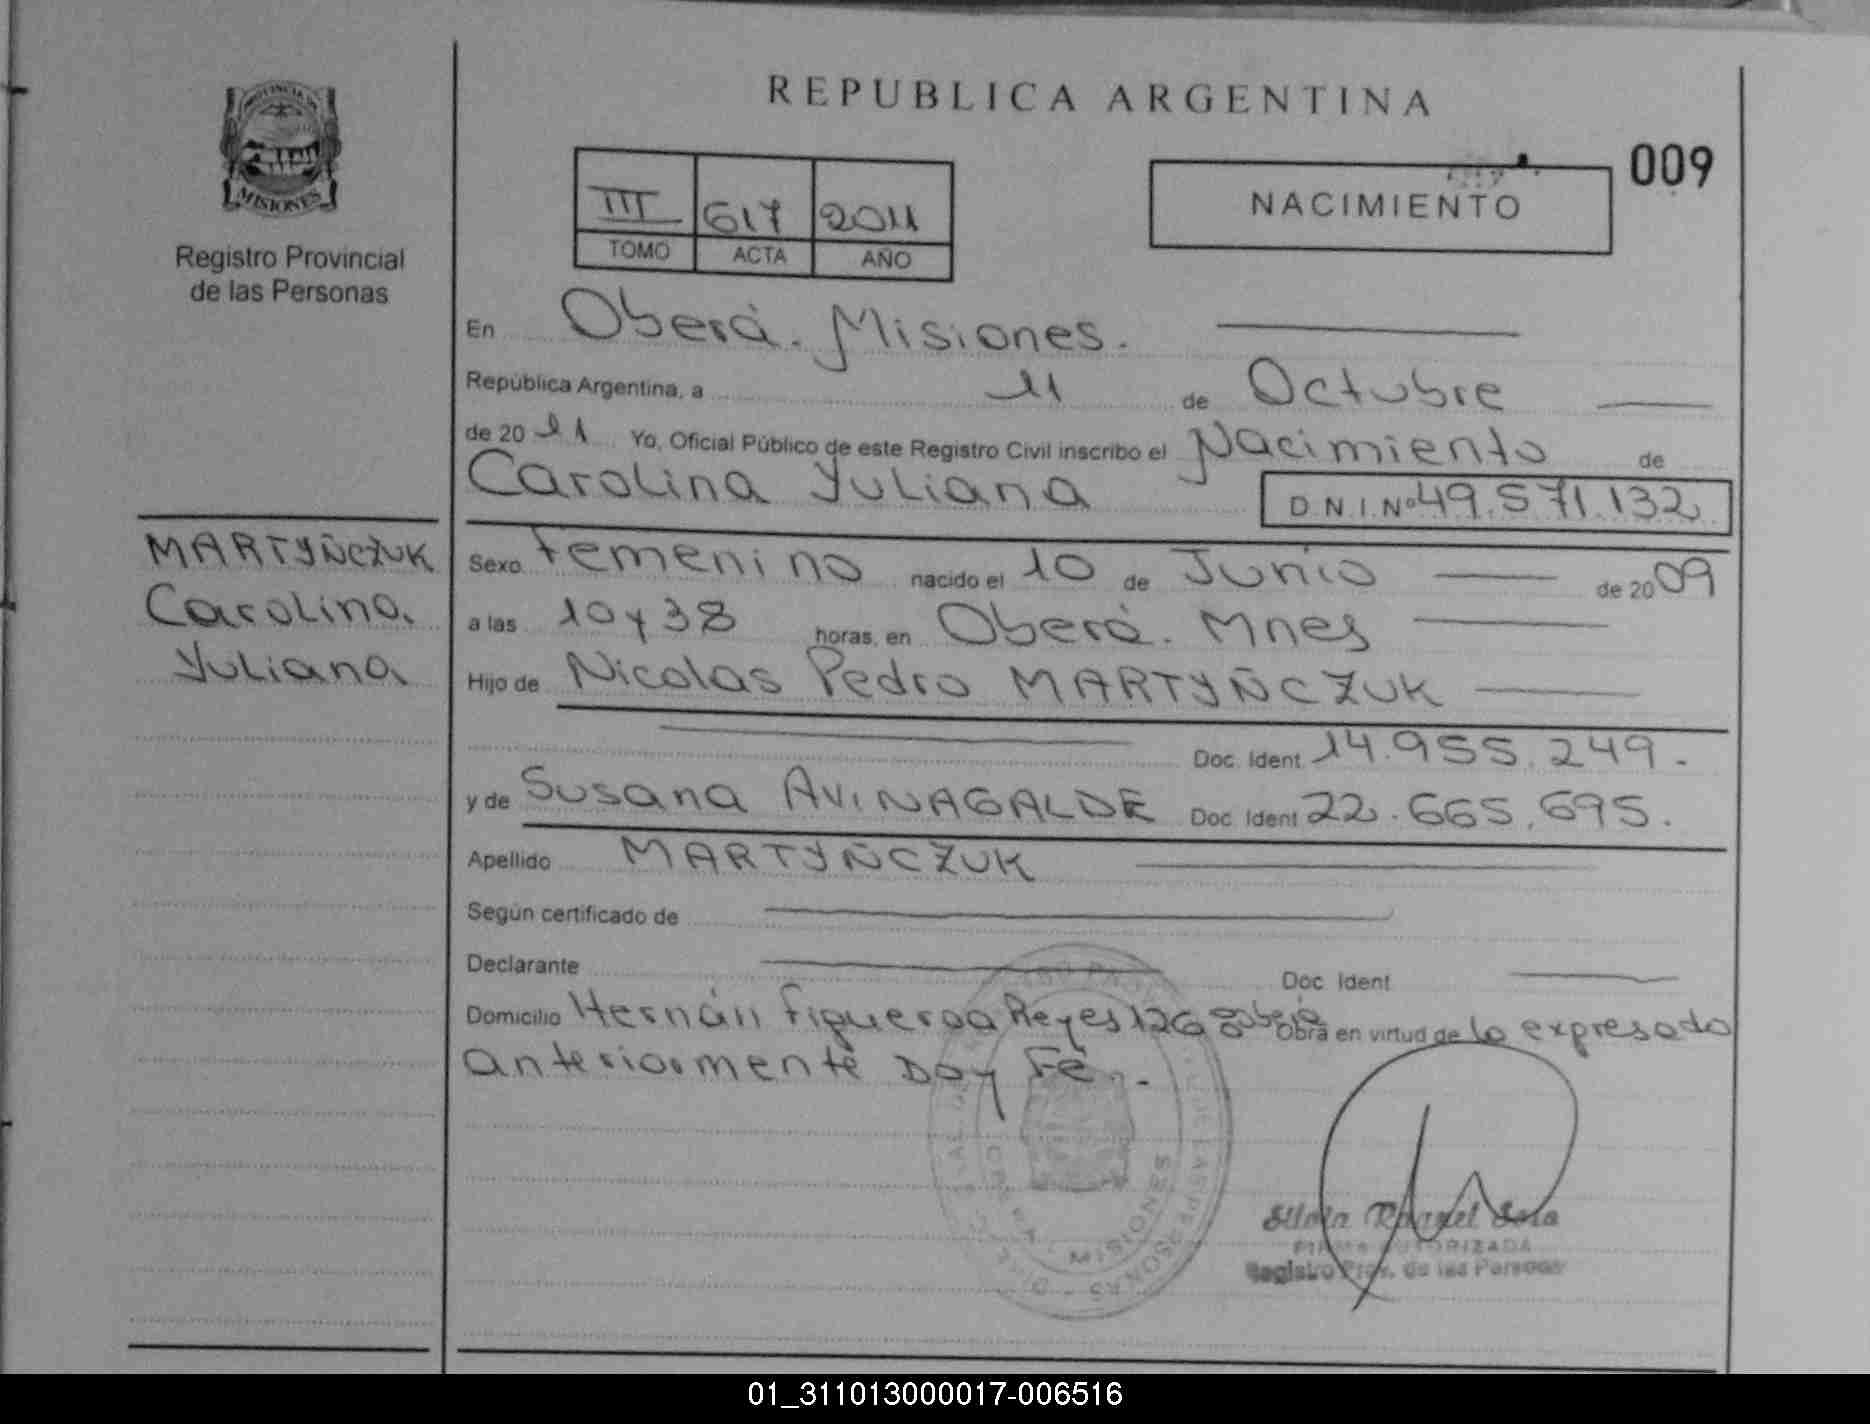 REPUBLICA ARGENTINA
PROVINCIA DE
MISIONES
Registro Provincial
de las Personas
III 617 2011
TOMO ACTA AÑO
NACIMIENTO
009
En Oberá. Misiones.
República Argentina, a 11 de Octubre
de 20 11 Yo, Oficial Público de este Registro Civil inscribo el Nacimiento de
Carolina Yuliana D.N.I.Nº 49.571.132
MARTYÑCZUK
Carolina
Yuliana
Sexo Femenino nacido el 10 de Junio de 2009
a las 10 y 38 horas, en Oberá. Mnes
Hijo de Nicolas Pedro MARTYÑCZUK
Doc. Ident. 14.955.249.
y de Susana AVINAGALDE Doc. Ident 22.665.695.
Apellido MARTYÑCZUK
Según certificado de
Declarante Doc. Ident
Domicilio Hernán Figueroa Reyes 126 Obra en virtud de lo expresado
anteriormente Doy Fé.
MISIONES
Raquel
FIRMA AUTORIZADA
Registro Prov. de las Personas
01_311013000017-006516